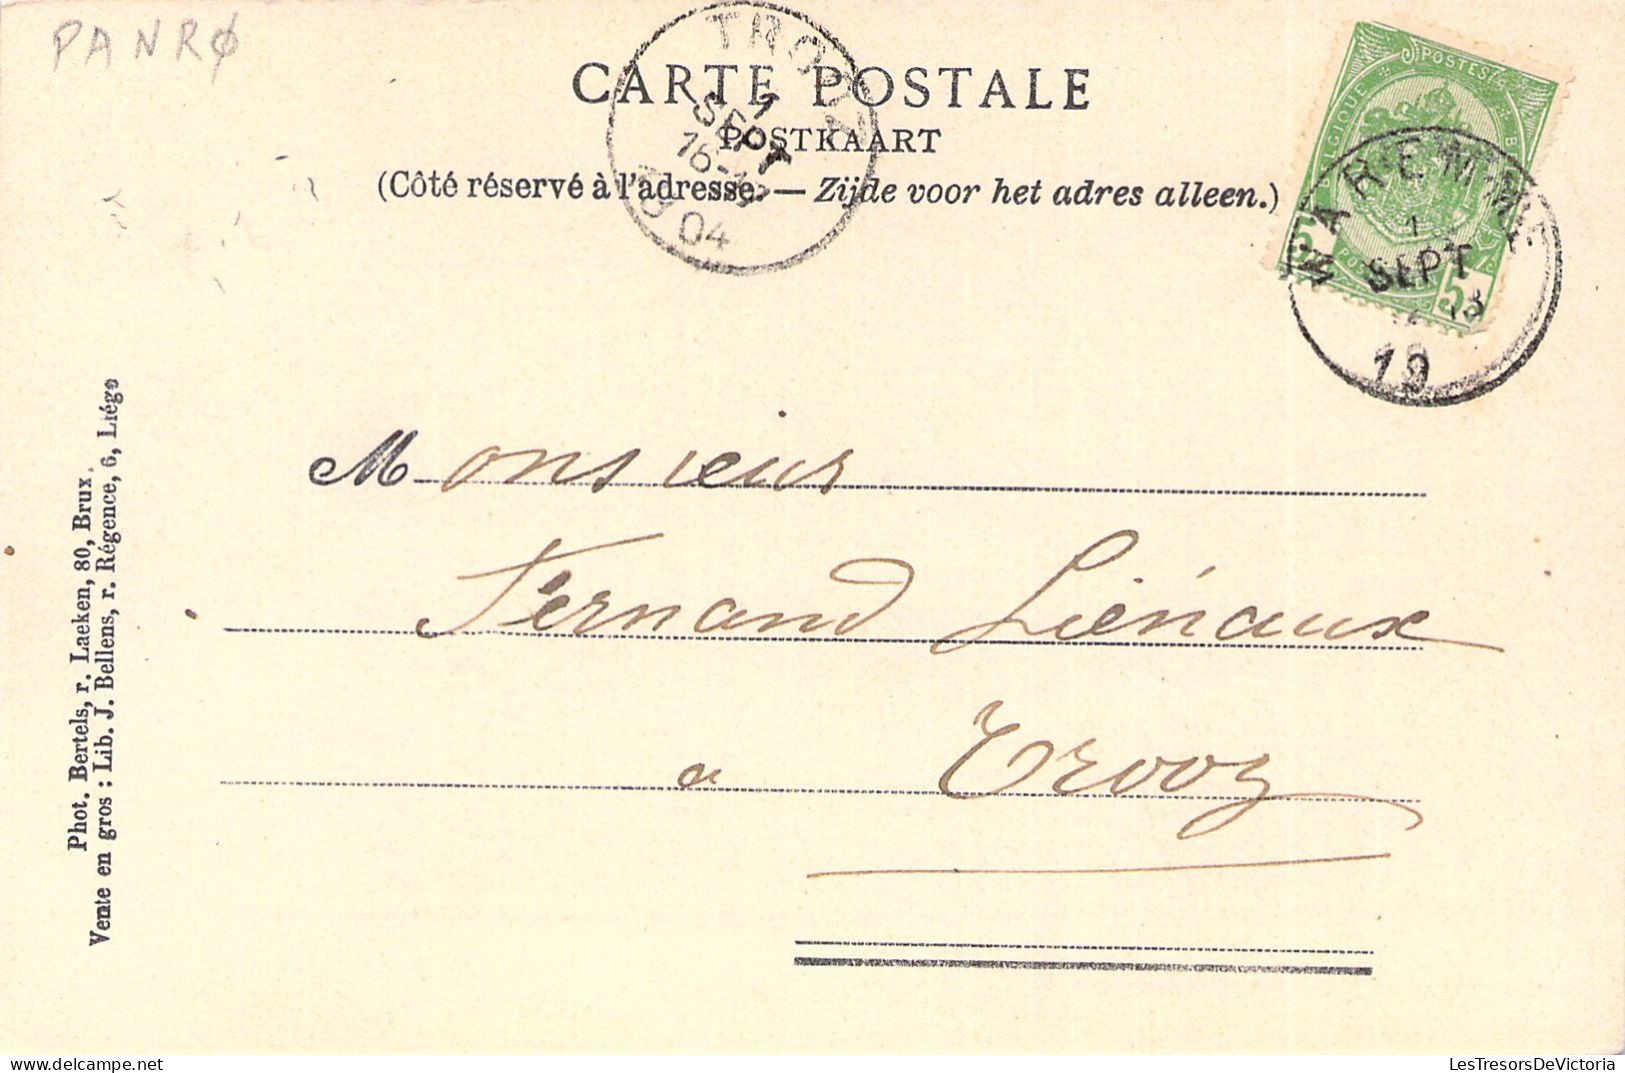 PANRØ
CARTE POSTALE
POSTKAART
(Côté réservé à l'adresse. — Zijde voor het adres alleen.)
TROOZ
1
SEPT
16-
04
POSTES
BELGIQUE
5
5
WAREMME
1
SEPT
19
Monsieur
Fernand Liénaux
à Trooz
Phot. Bertels, r. Laeken, 80, Brux.
Vente en gros : Lib. J. Bellens, r. Régence, 6, Liége
LesTresorsDeVictoria